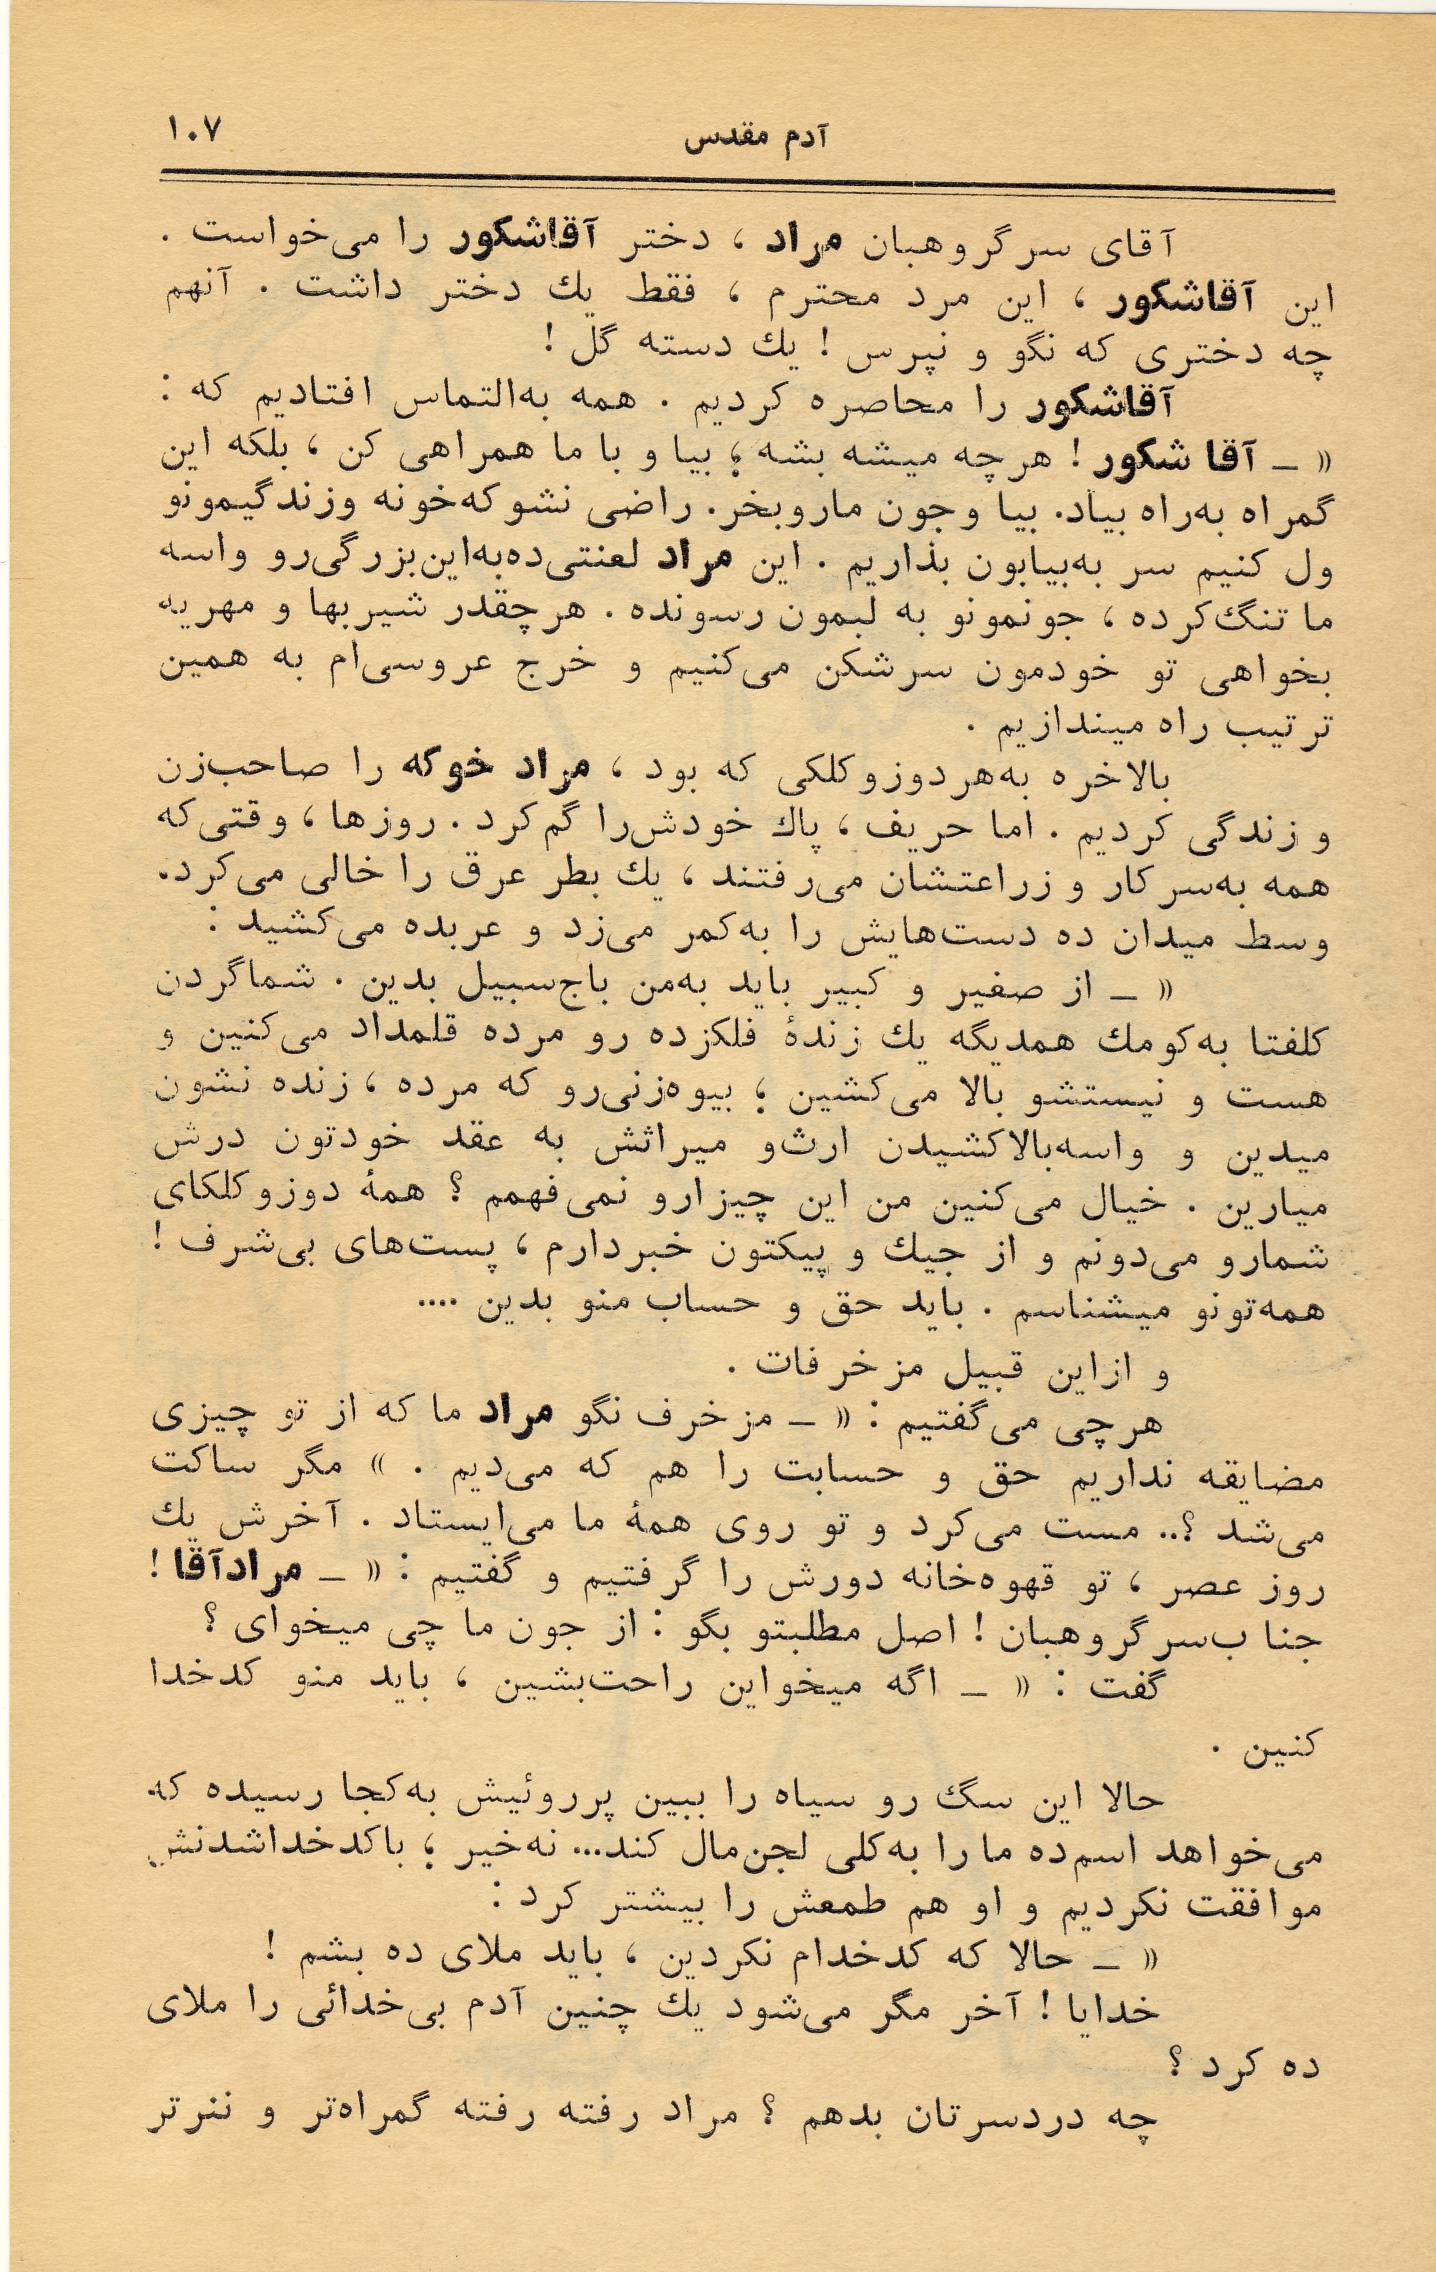 آدم مقدس ۱۰۷
آقای سرگروهبان مراد ، دختر آقاشکور را می‌خواست .
این آقاشکور ، این مرد محترم ، فقط یك دختر داشت . آنهم
چه دختری که نگو و نپرس ! یك دسته گل !
آقاشکور را محاصره کردیم . همه به‌التماس افتادیم که :
« ـ آقا شکور ! هرچه میشه بشه ؛ بیا و با ما همراهی کن ، بلکه این
گمراه به‌راه بیاد. بیا وجون ماروبخر. راضی نشوکه‌خونه وزندگیمونو
ول کنیم سر به‌بیابون بذاریم . این مراد لعنتی‌ده‌به‌این‌بزرگی‌رو واسه
ما تنگ‌کرده ، جونمونو به لبمون رسونده . هرچقدر شیربها و مهریه
بخواهی تو خودمون سرشکن می‌کنیم و خرج عروسی‌ام به همین
ترتیب راه میندازیم .
بالاخره به‌هردوزوکلکی که بود ، مراد خوکه را صاحب‌زن
و زندگی کردیم . اما حریف ، پاك خودش‌را گم‌کرد . روزها ، وقتی‌که
همه به‌سرکار و زراعتشان می‌رفتند ، یك بطر عرق را خالی می‌کرد.
وسط میدان ده دست‌هایش را به‌کمر می‌زد و عربده می‌کشید :
« ـ از صغیر و کبیر باید به‌من باج‌سبیل بدین . شماگردن
کلفتا به‌کومك همدیگه یك زندهٔ فلکزده رو مرده قلمداد می‌کنین و
هست و نیستشو بالا می‌کشین ؛ بیوه‌زنی‌رو که مرده ، زنده نشون
میدین و واسه‌بالاکشیدن ارث‌و میراثش به عقد خودتون درش
میارین . خیال می‌کنین من این چیزارو نمی‌فهمم ؟ همهٔ دوزوکلکای
شمارو می‌دونم و از جیك و پیکتون خبردارم ، پست‌های بی‌شرف !
همه‌تونو میشناسم . باید حق و حساب منو بدین ....
و ازاین قبیل مزخرفات .
هرچی می‌گفتیم : « ـ مزخرف نگو مراد ما که از تو چیزی
مضایقه نداریم حق و حسابت را هم که می‌دیم . » مگر ساکت
می‌شد ؟.. مست می‌کرد و تو روی همهٔ ما می‌ایستاد . آخرش یك
روز عصر ، تو قهوه‌خانه دورش را گرفتیم و گفتیم : « ـ مرادآقا !
جناب‌سرگروهبان ! اصل مطلبتو بگو : از جون ما چی میخوای ؟
گفت : « ـ اگه میخواین راحت‌بشین ، باید منو کدخدا
کنین .
حالا این سگ رو سیاه را ببین پرروئیش به‌کجا رسیده که
می‌خواهد اسم‌ده ما را به‌کلی لجن‌مال کند... نه‌خیر ؛ باکدخداشدنش
موافقت نکردیم و او هم طمعش را بیشتر کرد :
« ـ حالا که کدخدام نکردین ، باید ملای ده بشم !
خدایا ! آخر مگر می‌شود یك چنین آدم بی‌خدائی را ملای
ده کرد ؟
چه دردسرتان بدهم ؟ مراد رفته رفته گمراه‌تر و ننرتر